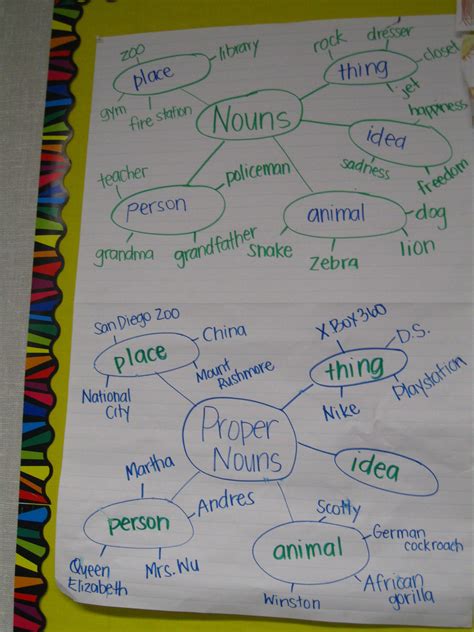 zoo
library
place
gym
fire station
rock
dresser
closet
thing
jet
Nouns
happiness
idea
sadness
freedom
teacher
policeman
person
grandma
grandfather
animal
dog
snake
zebra
lion
San Diego Zoo
China
place
Mount
Rushmore
National
City
XBOX360
D.S.
thing
Playstation
Nike
Proper
Nouns
idea
Martha
Andres
person
Queen
Elizabeth
Mrs. Wu
Scotty
German
cockroach
animal
African
gorilla
Winston